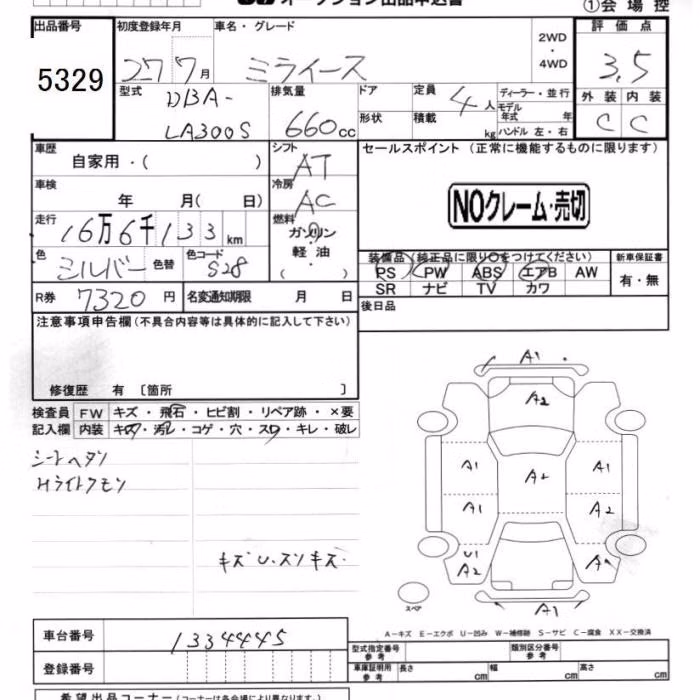 オークション出品申込書
①会場控
出品番号
5329
初度登録年月
27 7月
車名・グレード
ミライース
2WD
・
4WD
評価点
3,5
型式
DBA-
LA300S
排気量
660cc
ドア
形状
定員
4人
積載
kg
ディーラー・並行
モデル
年式 年
ハンドル 左・右
外装 内装
C C
車歴
自家用・( )
シフト
AT
セールスポイント (正常に機能するものに限ります)
NOクレーム・売切
車検
年 月( 日)
冷房
AC
走行
16万6千133km
燃料
ガソリン
軽油
・
( )
色
シルバー
色替
色コード
S28
装備品(純正品に限り○をつけてください)
PS PW ABS エアB AW
SR ナビ TV カワ
新車保証書
有・無
R券 7320円
名変通知期限 月 日
後日品
注意事項申告欄(不具合内容等は具体的に記入して下さい)
修復歴 有 〔箇所 〕
検査員
記入欄
FW キズ・飛石・ヒビ割・リペア跡・×要
内装 キズ・汚レ・コゲ・穴・スレ・キレ・破レ
シートヘタリ
Hライトクモリ
キズ U.スリキズ
A1
A2
A1 A2 A1
A1 A2
U1
A2
A
A1
スペア
A-キズ E-エクボ U-凹み W-補修跡 S-サビ C-腐食 XX-交換済
車台番号 1334445
登録番号
型式指定番号
参考
類別区分番号
参考
車庫証明用
参考
長さ cm 幅 cm 高さ cm
希望出品コーナー(コーナーは各会場により異なります。)